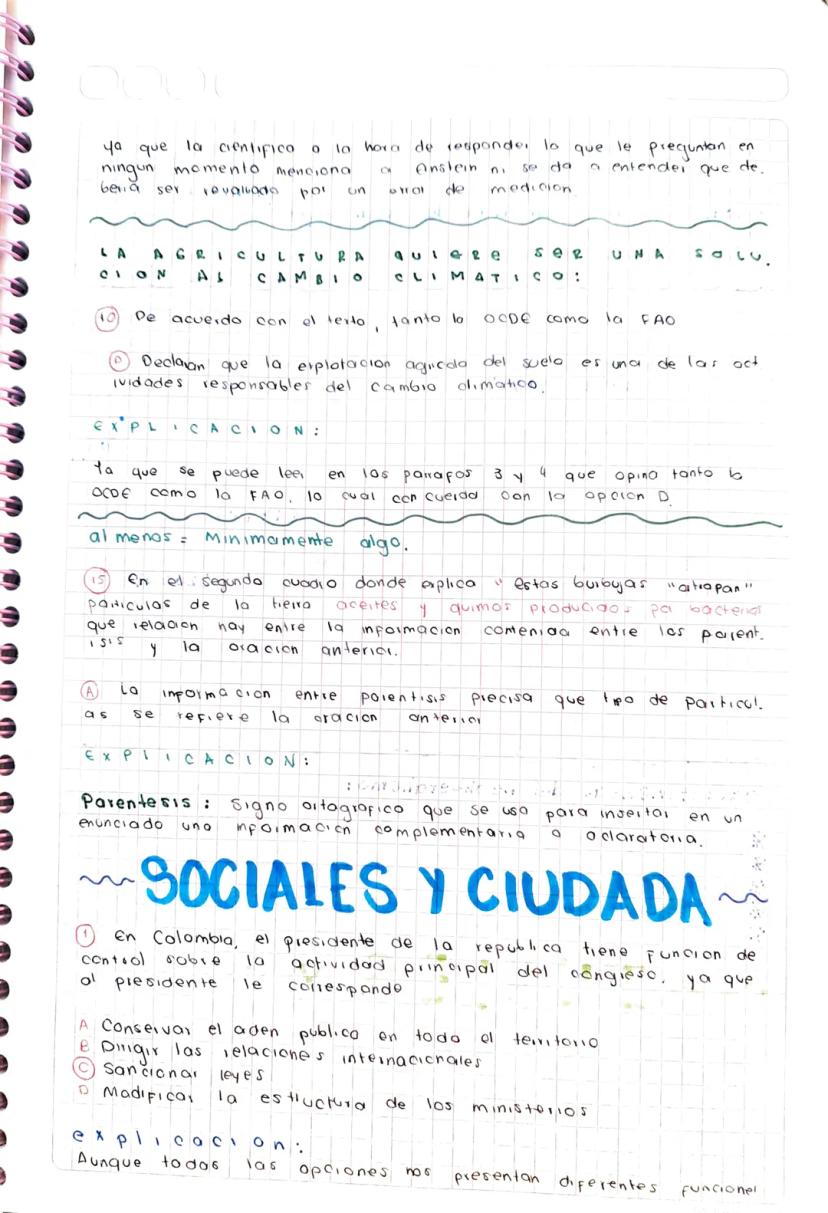 ya que la cientifica a la hora de responder lo que le preguntan en
ningun momento menciona a Einstein ni se da a entender que de.
beria ser revaluado por un error de medicion
LA AGRICULTURA QUIERE SER UNA SOLU.
CION AL CAMBIO CLIMATICO:
10 De acuerdo con el texto, tanto la OCDE como la FAO
D Declaran que la explotacion agricola del suelo es una de las act
ividades responsables del cambio climatico.
EXPLICACION:
Ya que se puede leer en los parrafos 3 y 4 que opina tanto la
OCDE como la FAO, lo cual concuerda con la opcion D.
al menos = Minimamente algo.
15 En el segundo cuadro donde explica "estas burbujas "atrapan"
particulas de la tierra aceites y quimos producidos por bacterias
que relacion hay entre la informacion contenida entre los parent.
isis y la oracion anterior.
A La informacion entre parentisis precisa que tipo de particul.
as se refiere la oracion anterior
EXPLICACION:
Parentesis: Signo ortografico que se usa para insertar en un
enunciado una informacion complementaria o aclaratoria.
SOCIALES Y CIUDADA
1 En Colombia, el presidente de la republica tiene funcion de
control sobre la actividad principal del congreso, ya que
al presidente le corresponde
A Conservar el orden publico en todo el territorio
B Dirigir las relaciones internacionales
C Sancionar leyes
D Modificar la estructura de los ministerios
explicacion:
Aunque todas las opciones nos presentan diferentes funciones